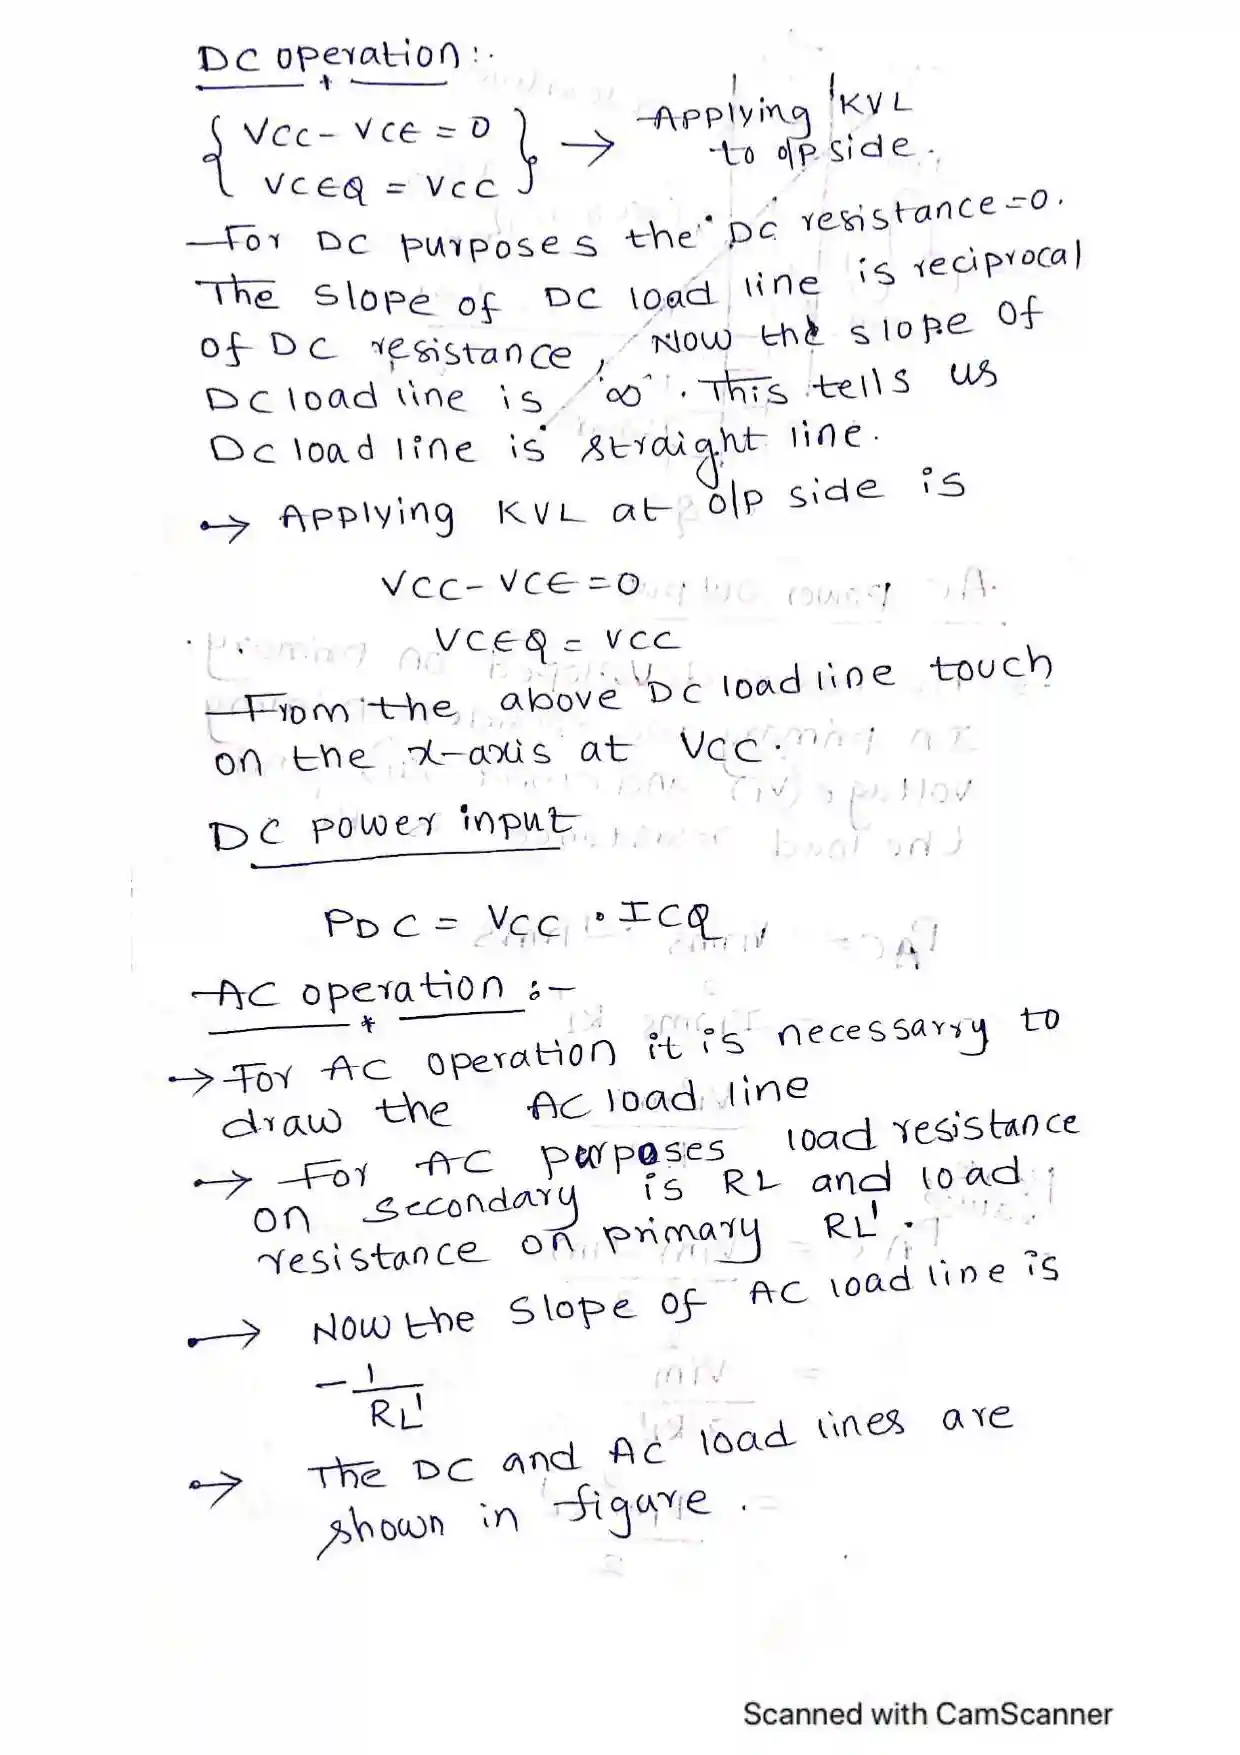 DC operation :-
{ VCC - VCE = 0 } → Applying KVL
VCEQ = VCC to o/p side.
For DC purposes the DC resistance = 0.
The slope of DC load line is reciprocal
of DC resistance, Now the slope of
DC load line is '∞'. This tells us
DC load line is straight line.
→ Applying KVL at o/p side is
VCC - VCE = 0
VCEQ = VCC
From the above DC load line touch
on the x-axis at VCC.
DC power input
PDC = VCC . ICQ,
AC operation :-
→ For AC operation it is necessarry to
draw the AC load line
→ For AC purposes load resistance
on secondary is RL and load
resistance on primary RL'.
→ Now the slope of AC load line is
- 1
RL'
→ The DC and AC load lines are
shown in figure.
Scanned with CamScanner